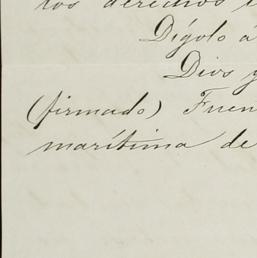 los derechos
Dígolo á
Dios y
(firmado) Fuen
marítima de